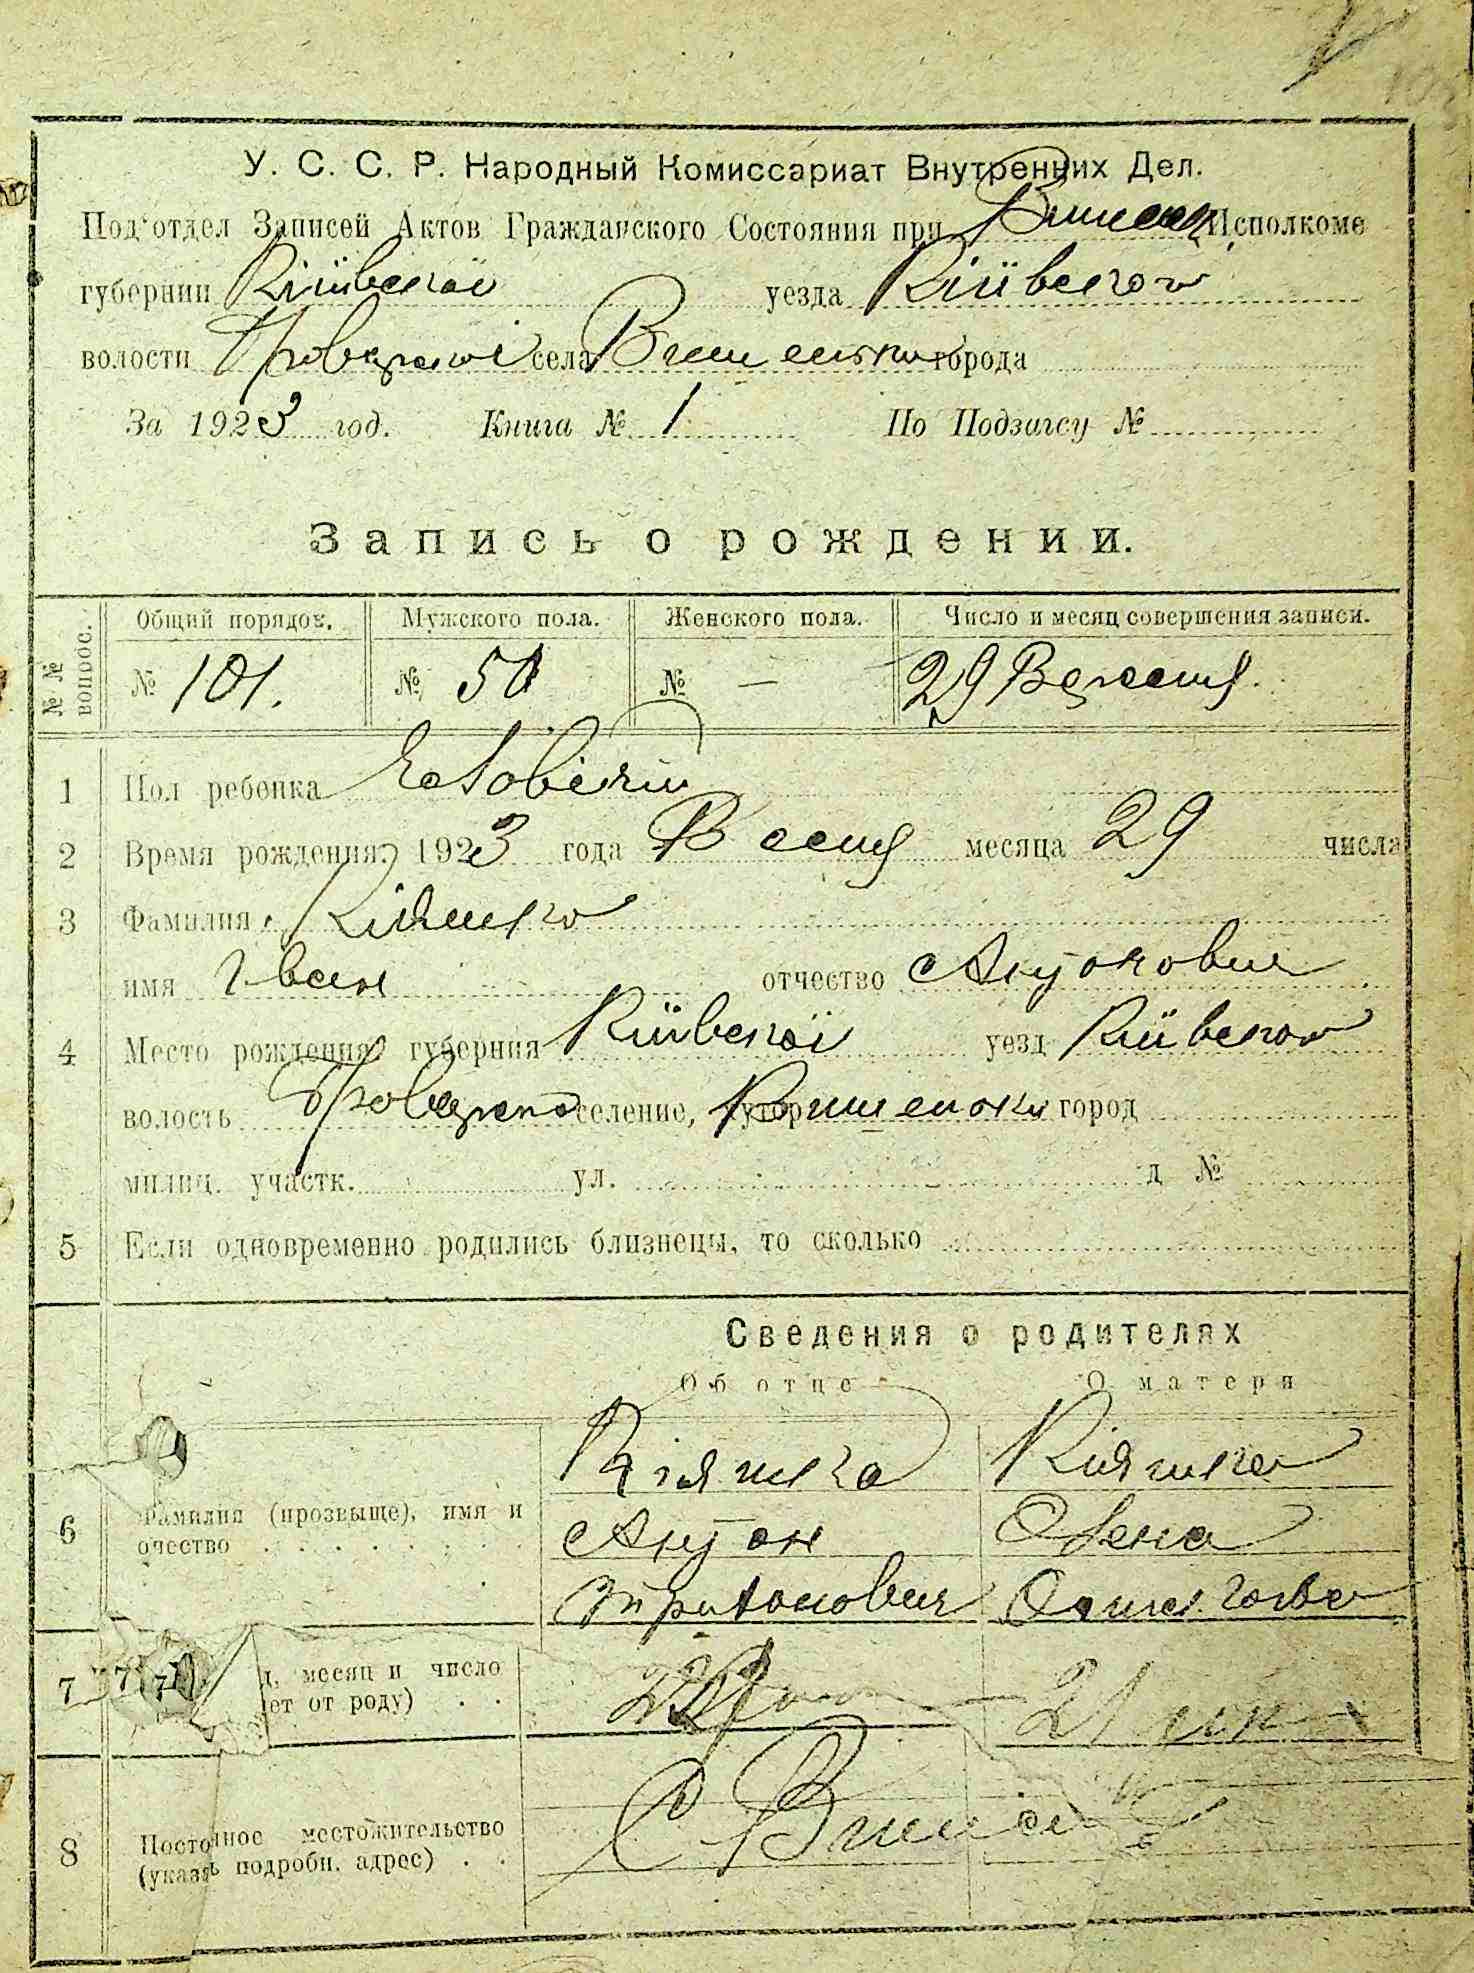 У. С. С. Р. Народный Комиссариат Внутренних Дел.
Под'отдел Записей Актов Гражданского Состояния при Исполкоме
губернии Київської уезда Київского
волости села Вишеньки города
За 1923 год. Книга № 1 По Подзагсу №
Запись о рождении.
№№ вопрос. Общий порядок. Мужского пола. Женского пола. Число и месяц совершения записи.
№ 101. № 50 № — 29 Вересня
1 Пол ребенка
2 Время рождения: 1923 года месяца 29 числа
3 Фамилия Кіяшко
имя Іван отчество Антонович
4 Место рождения губерния Київської уезд Київского
волость селение, хутор Вишеньки город
милиц. участк. ул. д №
5 Если одновременно родились близнецы, то сколько
Сведения о родителях
Об отце О матери
Кіяшка Кіяшка
6 Фамилия (прозвыще), имя и Антон Олена
очество
7 месяц и число
лет от роду) 21
8 Постоянное местожительство
(указать подробн. адрес) С